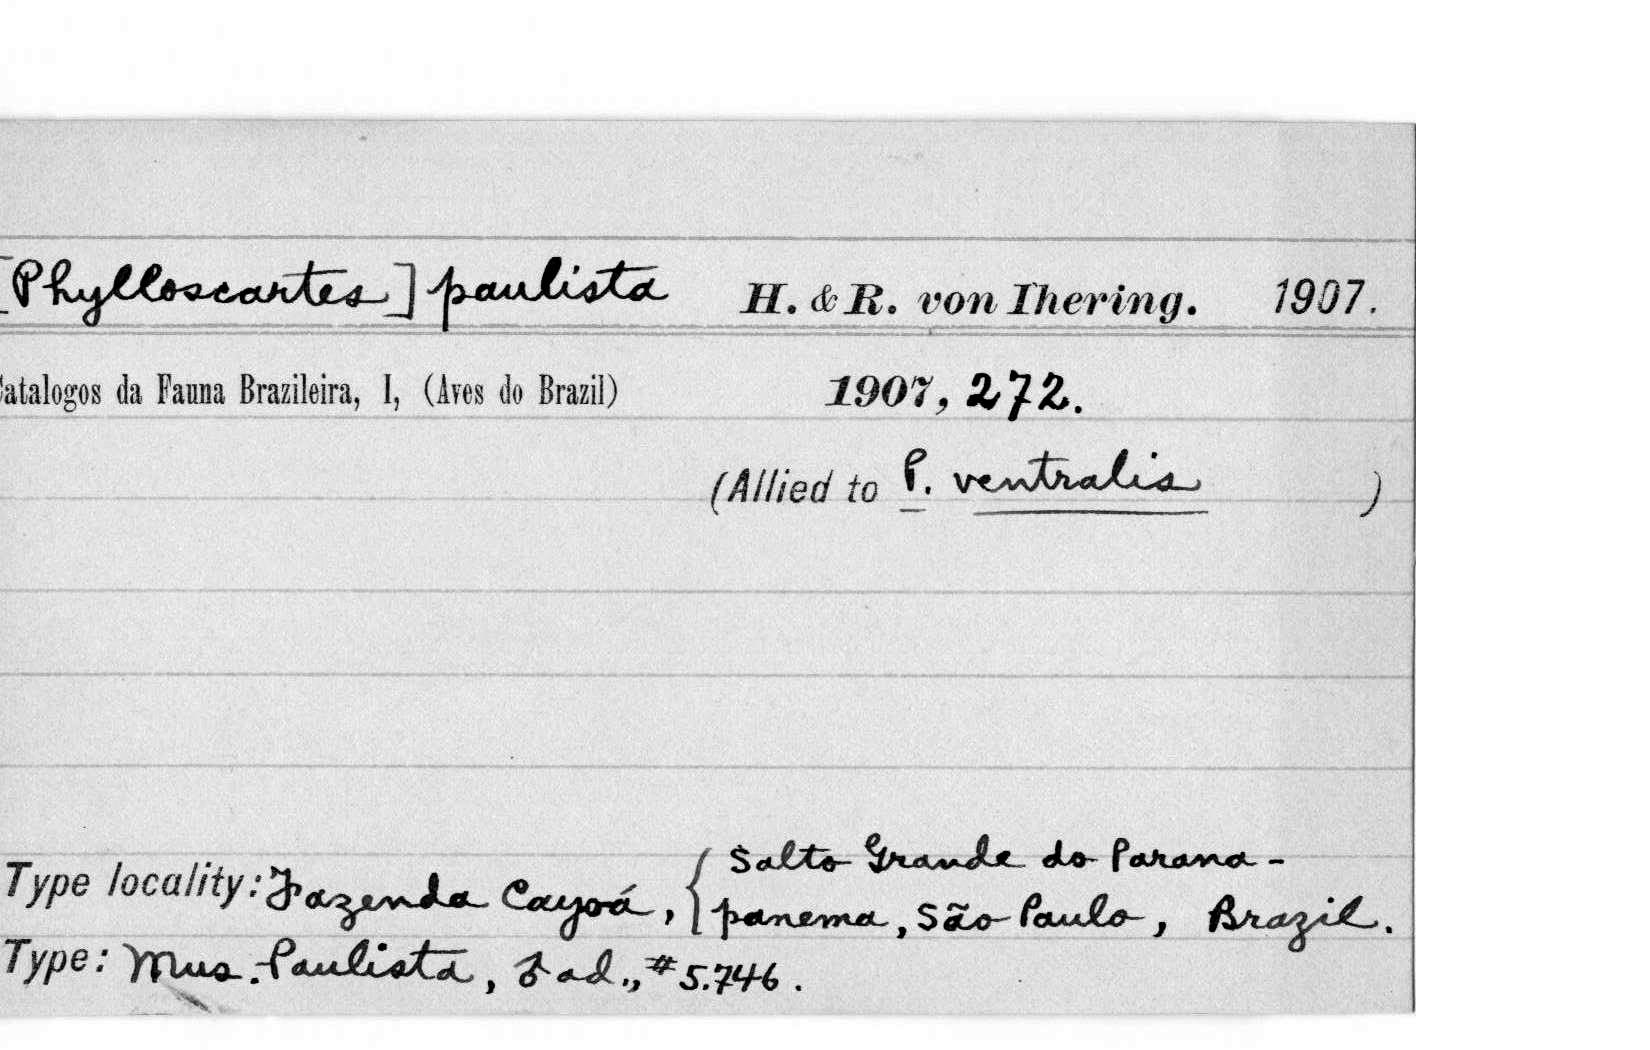 [Phylloscartes] paulista H. & R. von Ihering. 1907.
Catalogos da Fauna Brazileira, I, (Aves do Brazil) 1907, 272.
(Allied to P. ventralis )
Type locality: Fazenda Cayoá, { Salto Grande do Parana-
panema, São Paulo, Brazil.
Type: Mus. Paulista, ♂ ad., #5.746.